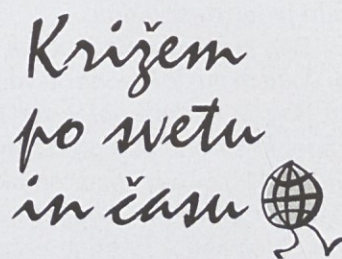 Križem
po svetu
in času